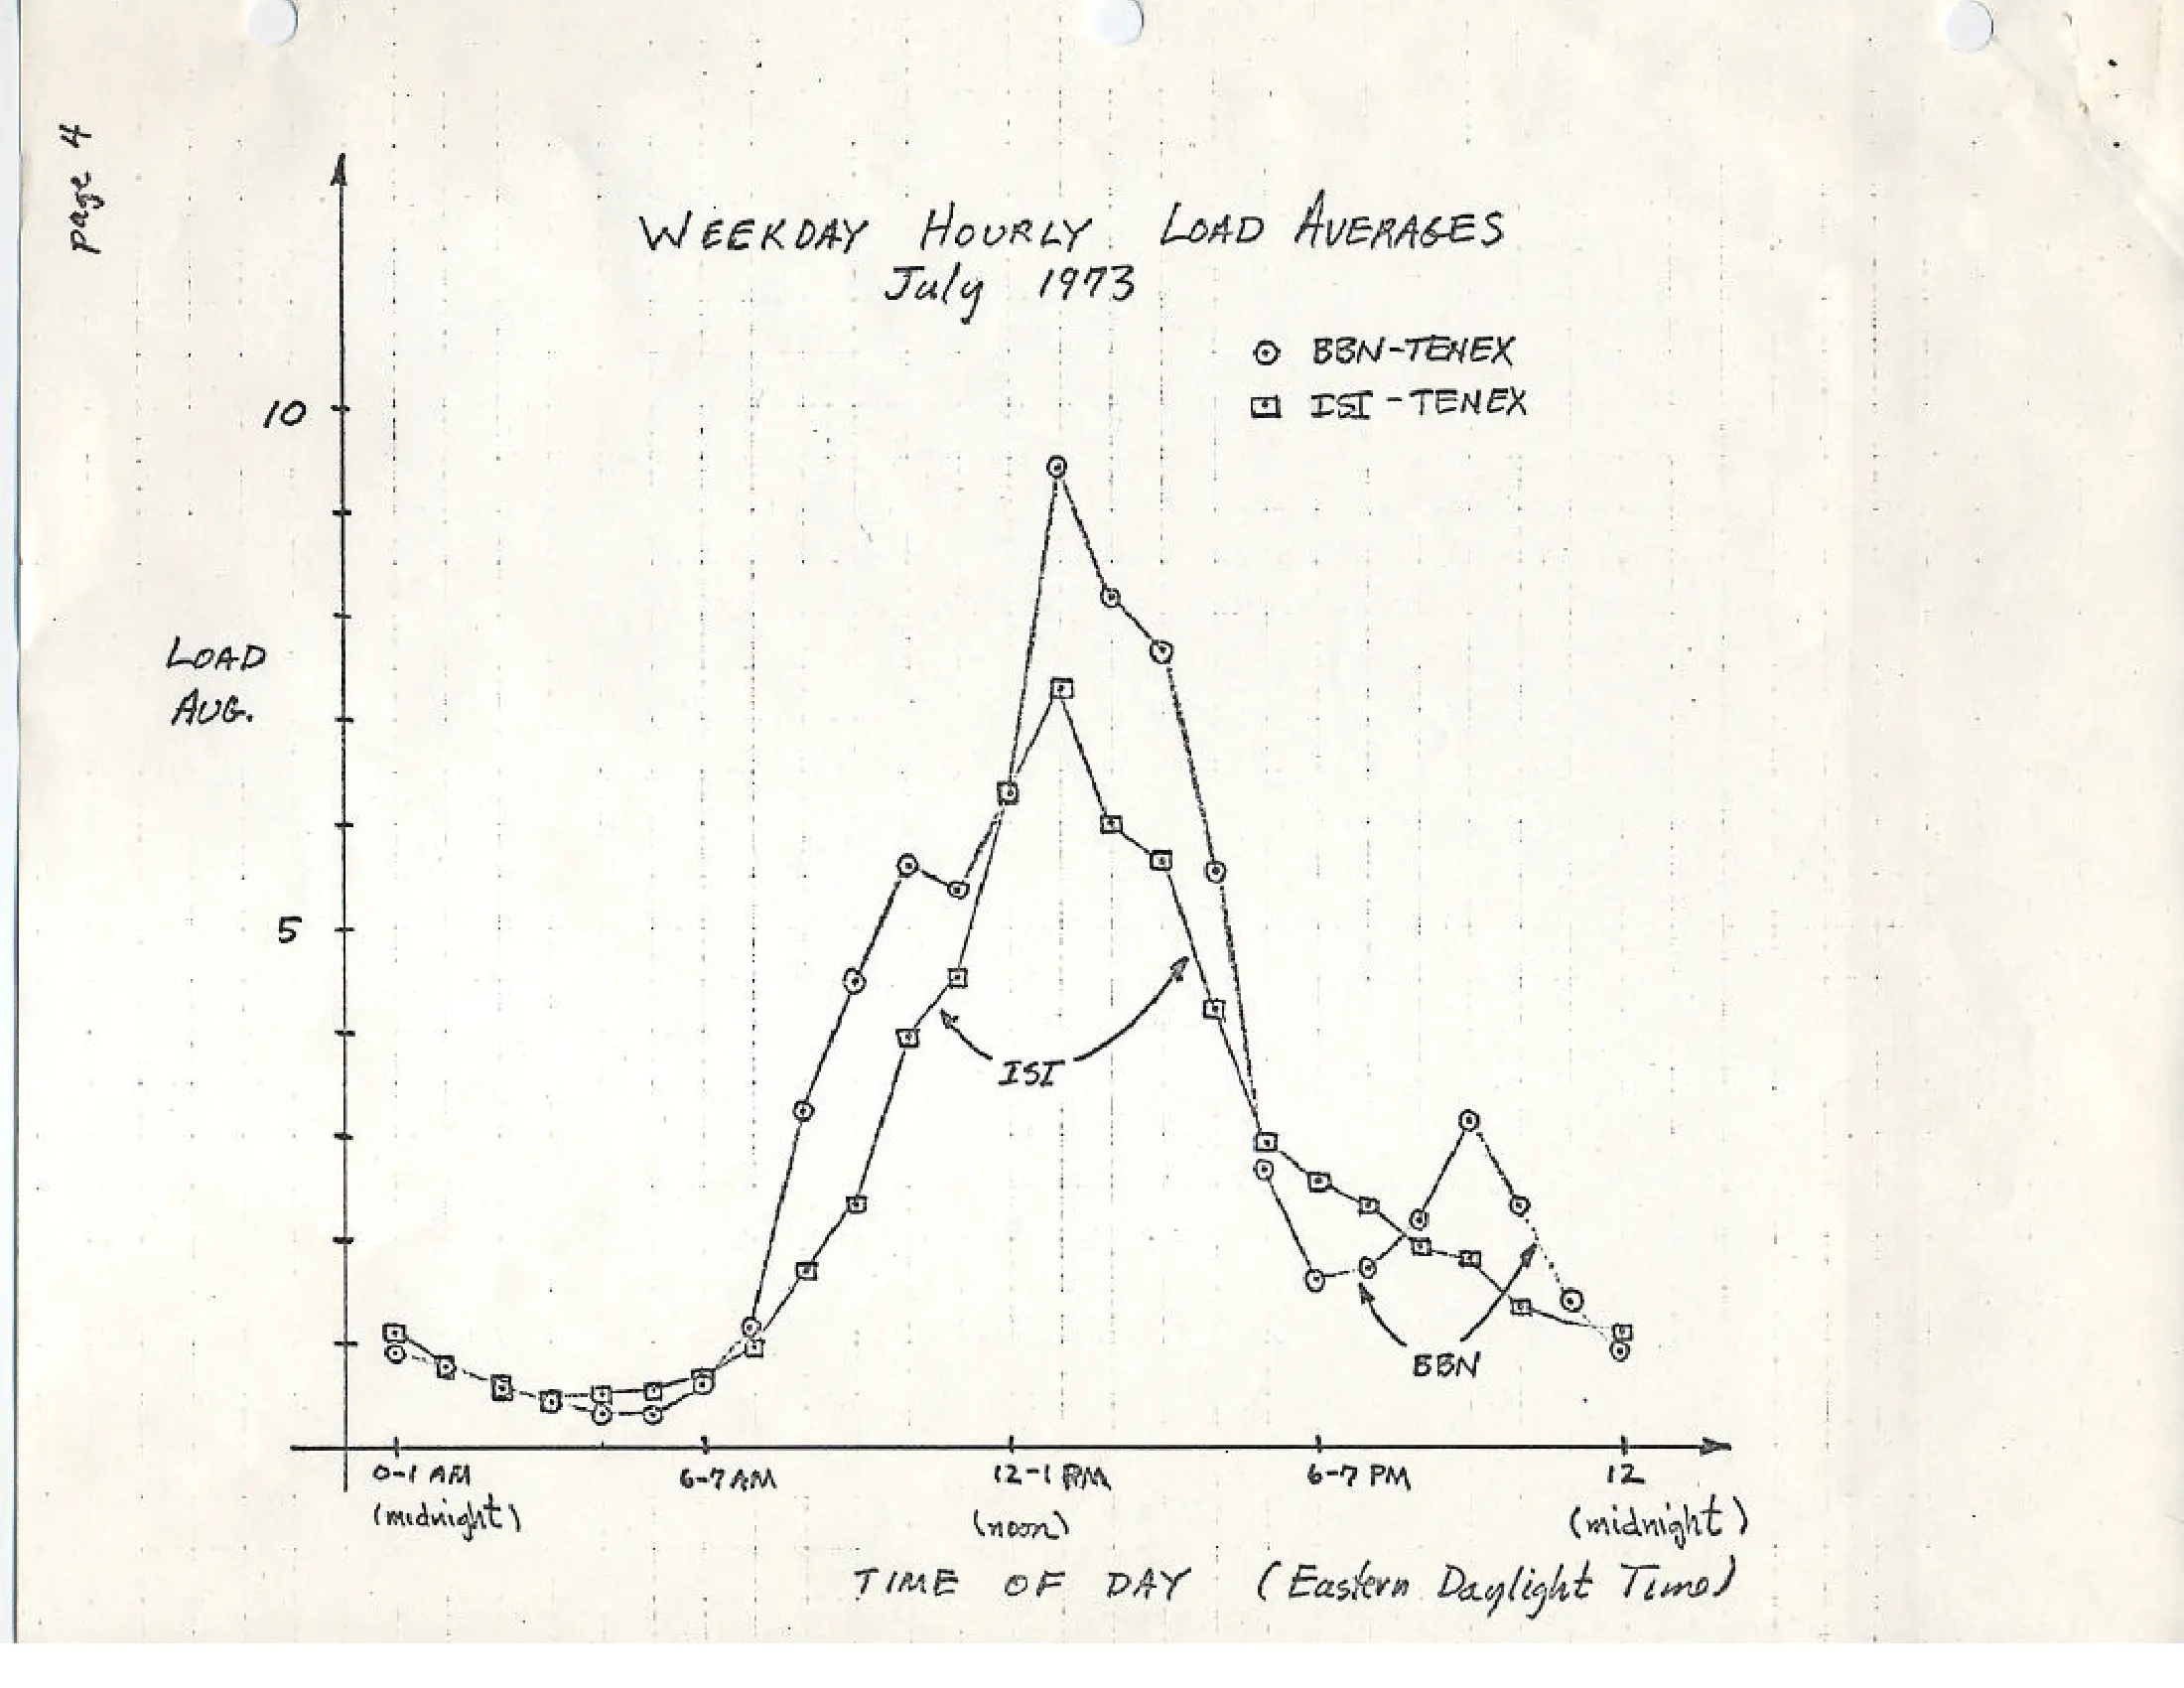 page 4
WEEKDAY HOURLY LOAD AVERAGES
July 1973
BBN-TENEX
ISI-TENEX
10
LOAD
AVG.
5
ISI
BBN
0-1 AM
6-7 AM
12-1 PM
6-7 PM
12
(midnight)
(noon)
(midnight)
TIME OF DAY (Eastern Daylight Time)